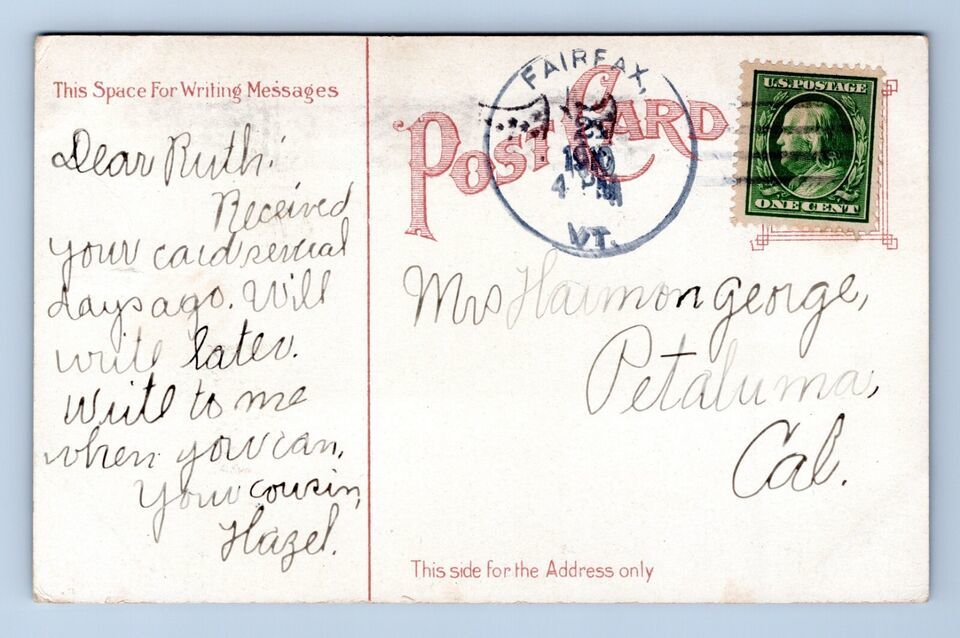 This Space For Writing Messages
Dear Ruth:
Received
your card several
days ago. Will
write later.
Write to me
when you can.
Your cousin,
Hazel.
POST CARD
FAIRFAX,
1910
4 PM
VT.
U.S. POSTAGE
ONE CENT
Mrs Haimon George,
Petaluma,
Cal.
This side for the Address only